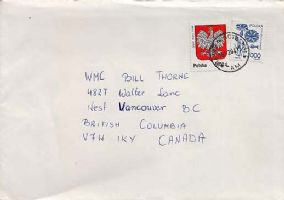 Polska
POLSKA
WMC BILL THORNE
4827 Walter Lane
West Vancouver BC
BRITISH COLUMBIA
V7W 1K7
CANADA